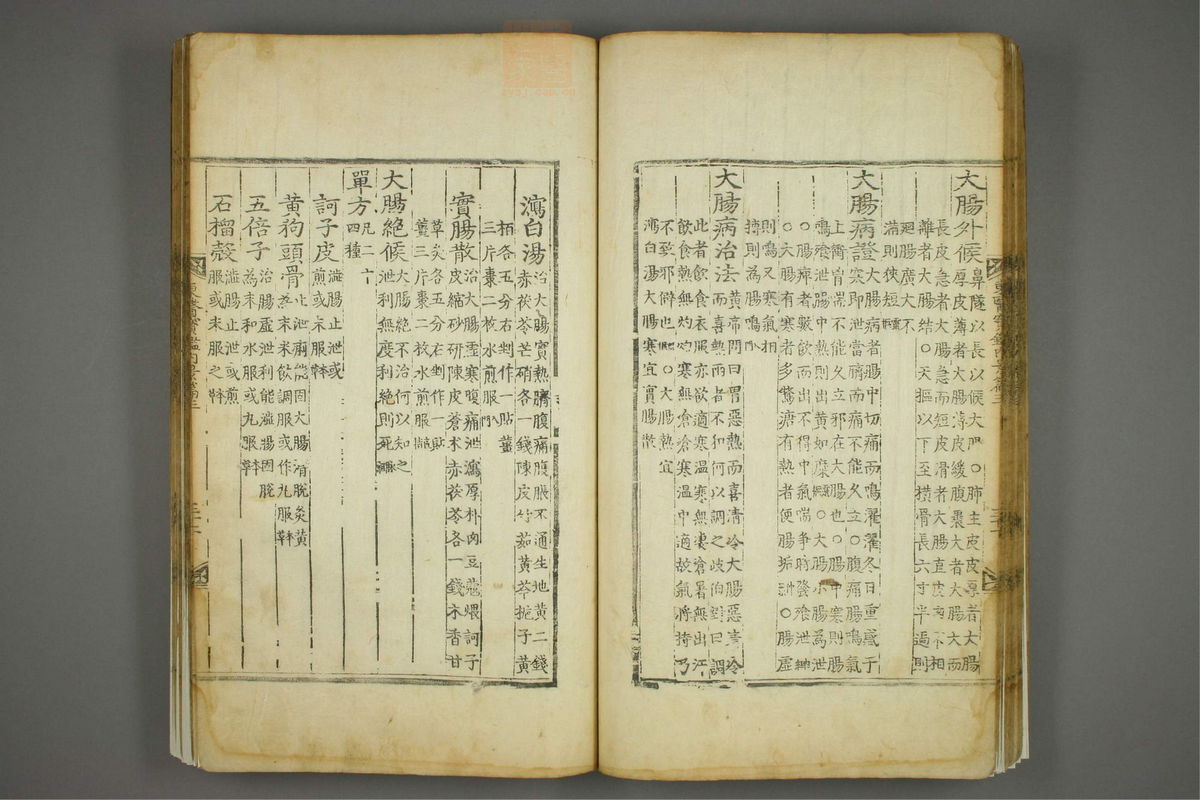 大腸外候
鼻隧以長以候大腸○肺主皮皮厚者大腸
厚皮薄者大腸薄皮緩腹裹大者大腸大而
長皮急者大腸急而短皮滑者大腸直皮肉不相
離者大腸結○天樞以下至橫骨長六寸半過則
廻腸廣大不
滿則狹短靈樞
大腸病證
大腸病者腸中切痛而鳴濯濯冬日重感于
寒卽泄當臍而痛不能久立○腹痛腸鳴氣
上衝胷喘不能久立邪在大腸也○腸中寒則腸
鳴飱泄腸中熱則出黃如糜靈樞○大腸小腸爲泄
○腸痺者數飮而出不得中氣喘爭時發飱泄
○大腸有寒者多鶩溏有熱者便腸垢○腸虛
則鳴又寒氣相
搏則爲腸鳴
大腸病治法
黃帝問曰胃惡熱而喜淸冷大腸惡淸冷
而喜熱兩者不和何以調之岐伯對曰調
此者飮食衣服亦欲適寒溫寒無凄愴暑無出汗
飮食熱無灼灼寒無滄滄寒溫中適故氣將持乃
不致邪僻也靈樞○大腸熱宜
瀉白湯大腸寒宜實腸散
瀉白湯
治大腸實熱臍腹痛腹脹不通生地黃二錢
赤茯苓芒硝各一錢陳皮竹茹黃芩梔子黃
栢各五分右剉作一貼薑
三片棗二枚水煎服入門
實腸散
治大腸虛寒腹痛泄瀉厚朴肉豆蔻煨訶子
皮縮砂硏陳皮蒼朮赤茯苓各一錢木香甘
草灸各五分右剉作一貼
薑三片棗二枚水煎服
大腸絶候
大腸絶不治何以知之
泄利無度利絶則死
單方
凡二十
四種
訶子皮
澁腸止泄或
煎或末服本草
黃狗頭骨
止泄痢能固大腸滑脫灸黃
爲末米飮調服或作丸服本草
五倍子
治腸虛泄利能澁腸固脫
爲末和水服或丸服本草
石榴殼
澁腸止泄或煎
服或末服之本草